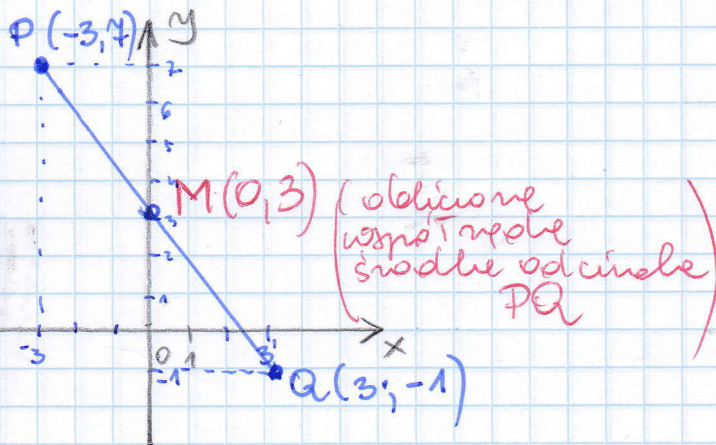 P(-3,7)
y
7
6
5
4
M(0,3)
3
2
1
(obliczone
współrzędne
środka odcinka
PQ)
-3
0
1
3
x
-1
Q(3;-1)